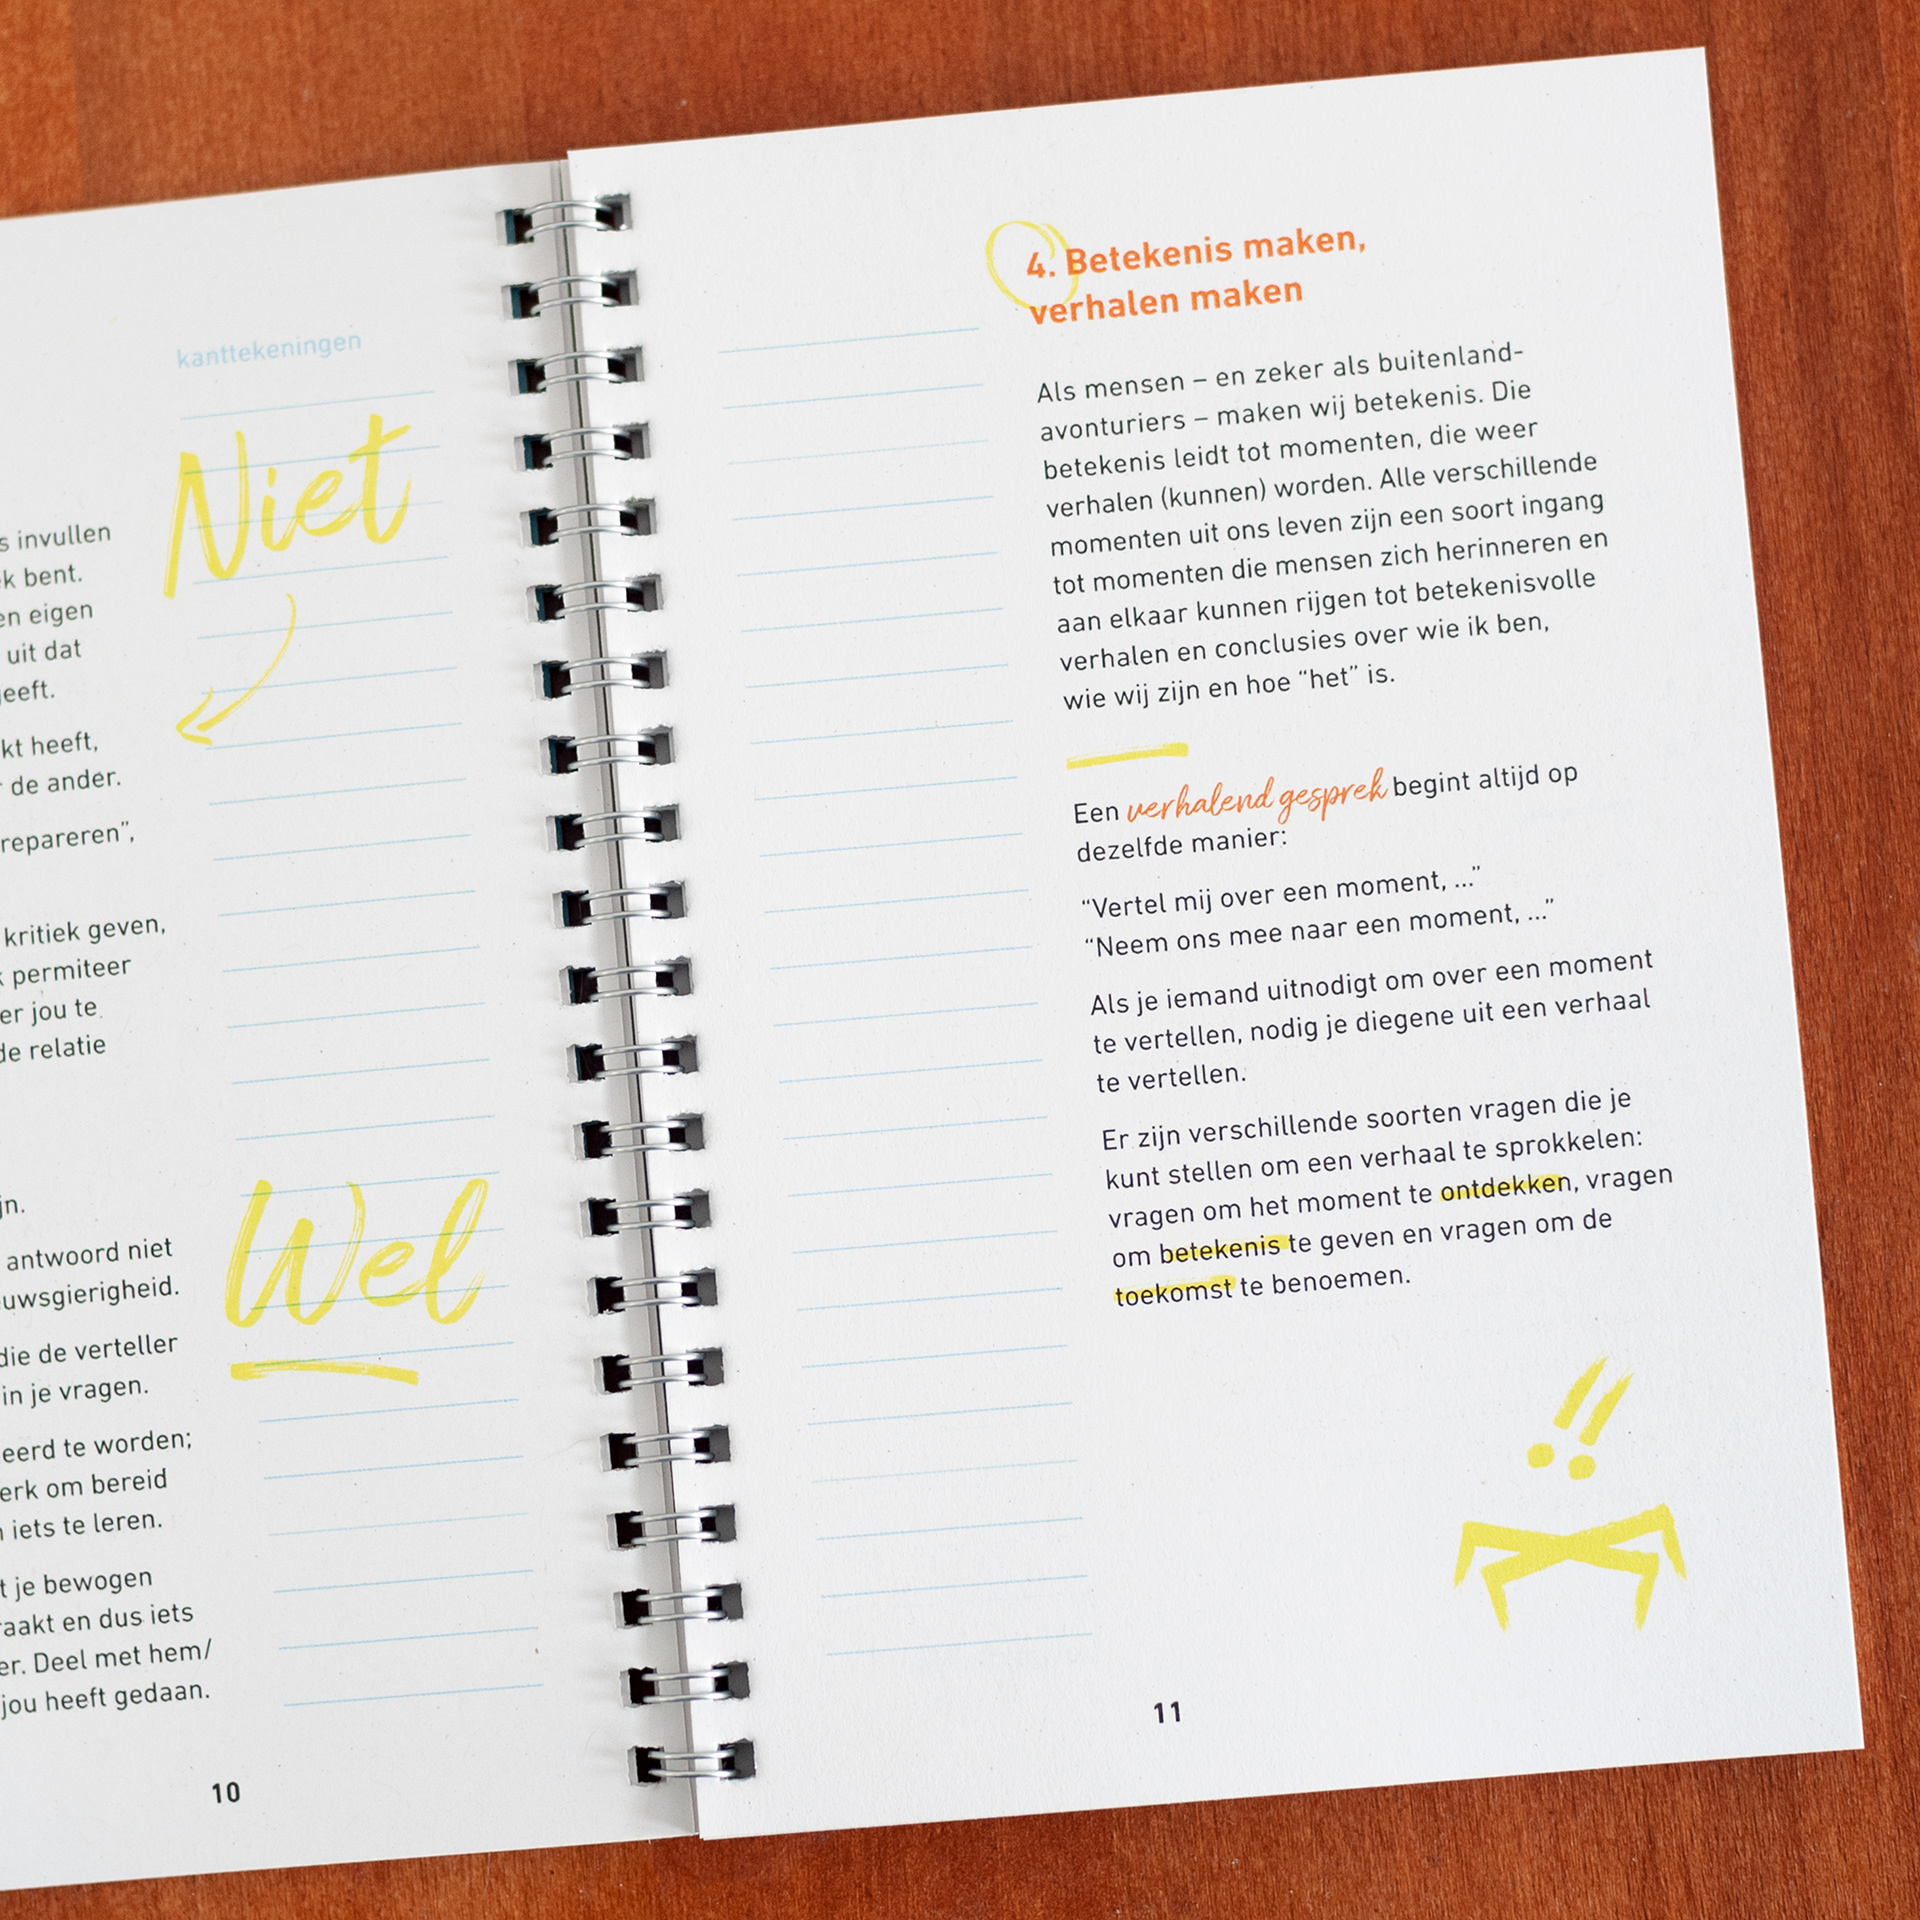 kanttekeningen
Niet
s invullen
k bent.
en eigen
uit dat
geeft.
kt heeft,
de ander.
repareren”,
kritiek geven,
permiteer
er jou te
de relatie
Wel
jn.
antwoord niet
uwsgierigheid.
die de verteller
in je vragen.
eerd te worden;
erk om bereid
iets te leren.
t je bewogen
raakt en dus iets
er. Deel met hem/
jou heeft gedaan.
10
4. Betekenis maken,
verhalen maken
Als mensen – en zeker als buitenland-
avonturiers – maken wij betekenis. Die
betekenis leidt tot momenten, die weer
verhalen (kunnen) worden. Alle verschillende
momenten uit ons leven zijn een soort ingang
tot momenten die mensen zich herinneren en
aan elkaar kunnen rijgen tot betekenisvolle
verhalen en conclusies over wie ik ben,
wie wij zijn en hoe “het” is.
Een verhalend gesprek begint altijd op
dezelfde manier:
“Vertel mij over een moment, ...”
“Neem ons mee naar een moment, ...”
Als je iemand uitnodigt om over een moment
te vertellen, nodig je diegene uit een verhaal
te vertellen.
Er zijn verschillende soorten vragen die je
kunt stellen om een verhaal te sprokkelen:
vragen om het moment te ontdekken, vragen
om betekenis te geven en vragen om de
toekomst te benoemen.
!!
11